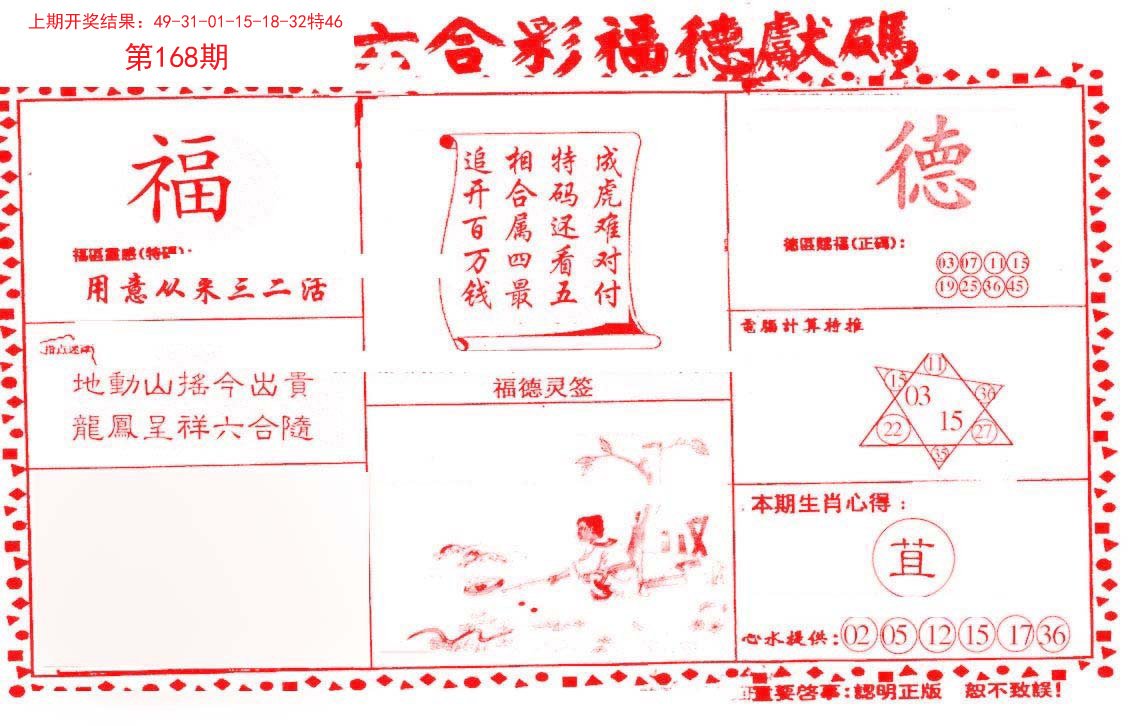 上期开奖结果：49-31-01-15-18-32特46
第168期
六合彩福德獻碼
福
福區靈感(特碼):
用意从来三二活
指点迷津
地動山搖今出貴
龍鳳呈祥六合隨
成虎难对付
特码还看五
相合属四最
追开百万钱
福德灵签
德
德區賜福(正碼)：
03 07 11 15
19 25 36 45
電腦計算特推
11
15 36
03
15
22 27
35
本期生肖心得：
苴
心水提供：02 05 12 15 17 36
重要啓事：認明正版 恕不致誤！